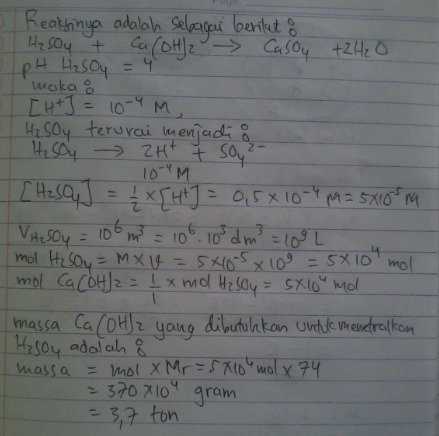 Reaksinya adalah sebagai berikut :
H₂SO₄ + Ca(OH)₂ → CaSO₄ + 2H₂O
pH H₂SO₄ = 4
maka :
[H⁺] = 10⁻⁴ M,
H₂SO₄ terurai menjadi :
H₂SO₄ → 2H⁺ + SO₄²⁻
10⁻⁴M
[H₂SO₄] = 1/2 × [H⁺] = 0,5 × 10⁻⁴ M = 5×10⁻⁵ M
V H₂SO₄ = 10⁶ m³ = 10⁶ . 10³ dm³ = 10⁹ L
mol H₂SO₄ = M × V = 5×10⁻⁵ × 10⁹ = 5×10⁴ mol
mol Ca(OH)₂ = 1/1 × mol H₂SO₄ = 5×10⁴ mol
massa Ca(OH)₂ yang dibutuhkan untuk menetralkan
H₂SO₄ adalah :
massa = mol × Mr = 5×10⁴ mol × 74
= 370 × 10⁴ gram
= 3,7 ton